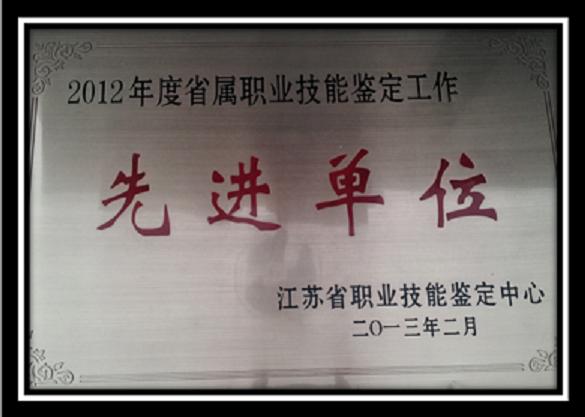 2012年度省属职业技能鉴定工作
先进单位
江苏省职业技能鉴定中心
二〇一三年二月